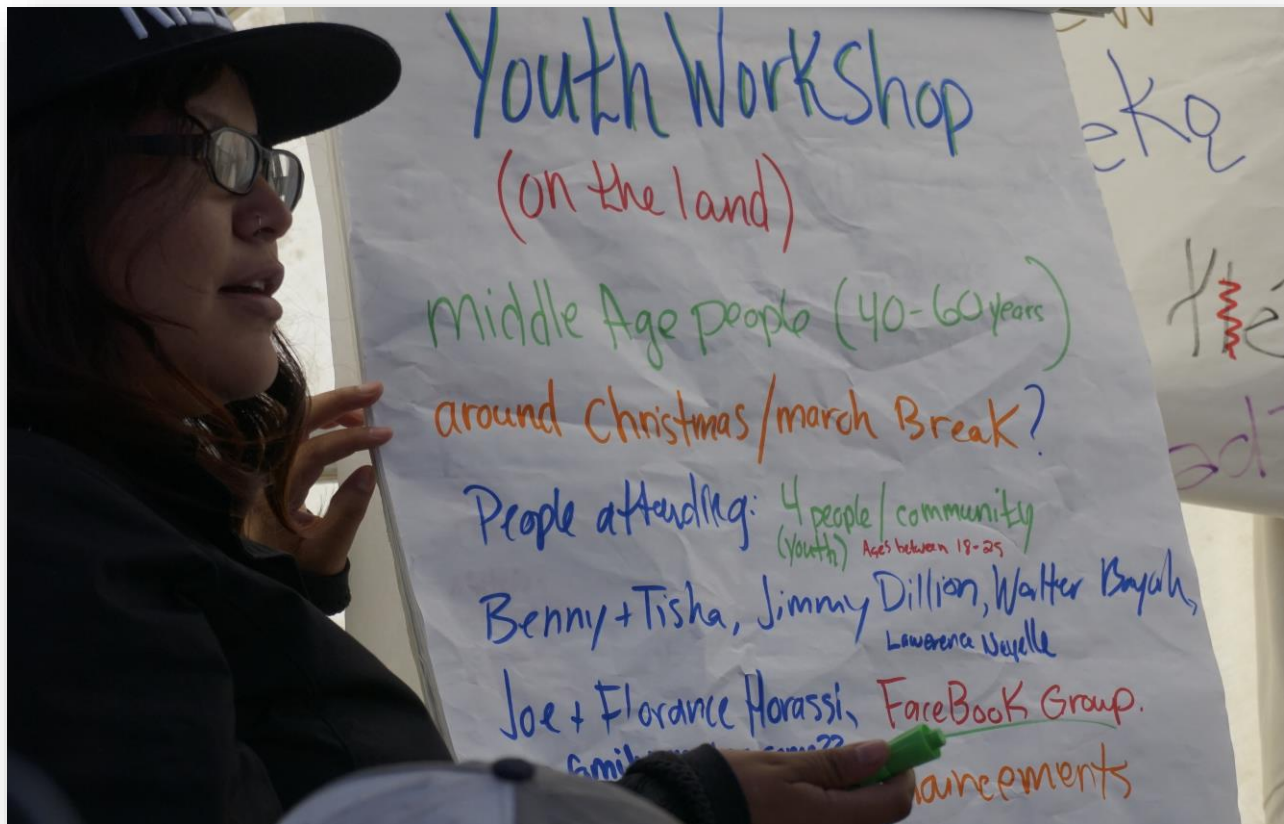 Youth Workshop
(on the land)
middle Age people (40-60 years)
around Christmas/march Break?
People attending: 4 people/community
(youth) Ages between 18-25
Benny + Tisha, Jimmy Dillion, Walter Bayah,
Lawerence Nayelle
Joe + Florance Horassi, FaceBook Group.